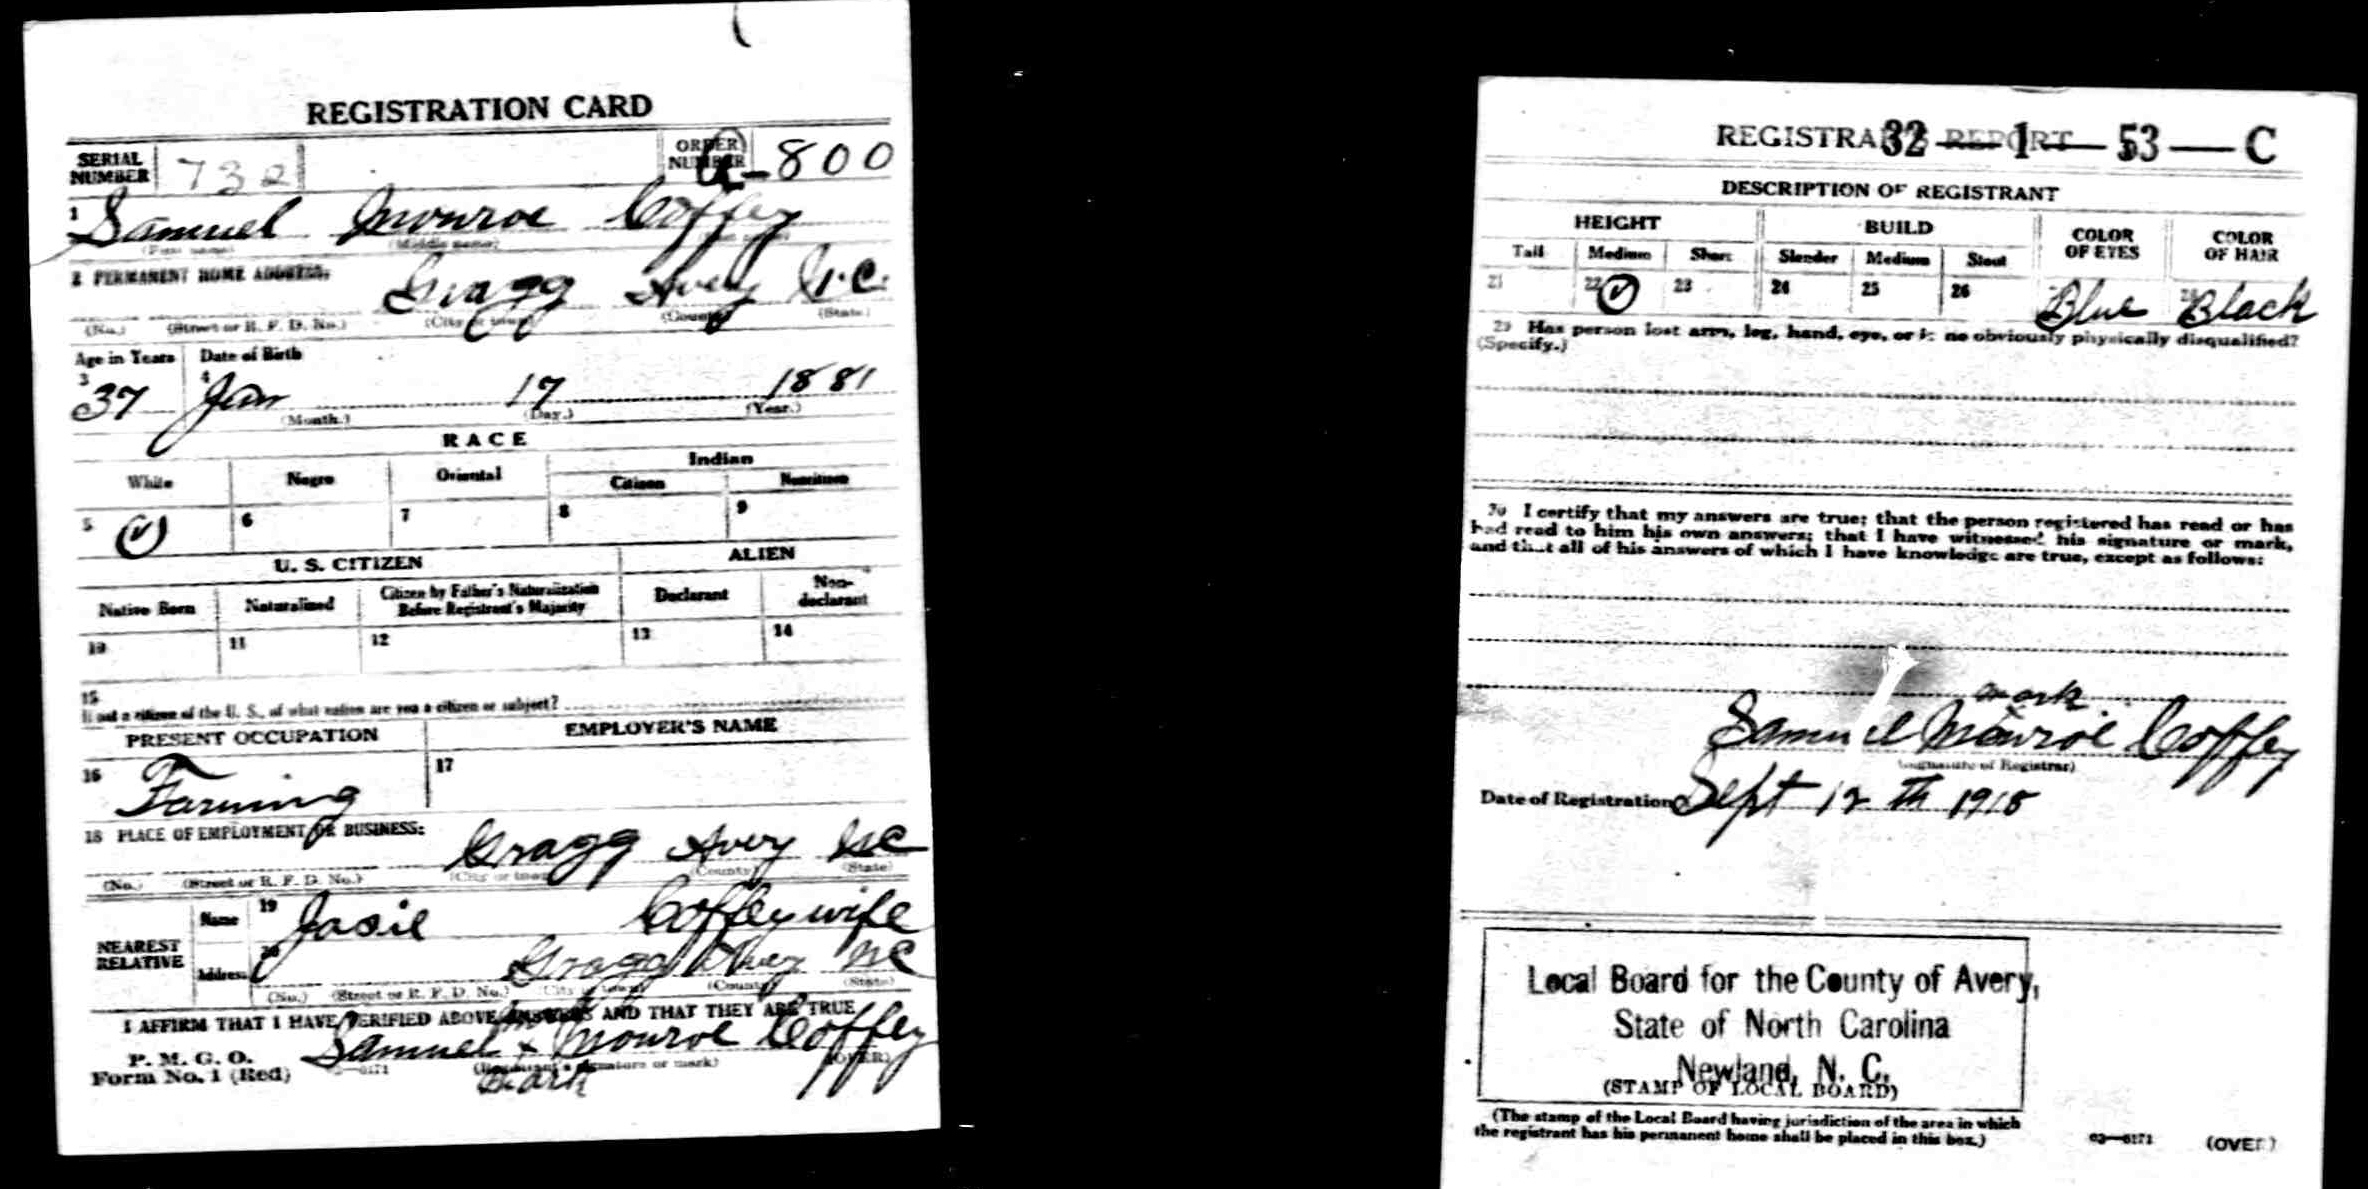 REGISTRATION CARD
SERIAL NUMBER 732 ORDER NUMBER A-800
1 Samuel Monroe Coffey
(First name) (Middle name)
2 PERMANENT HOME ADDRESS:
Gragg Avery N.C.
(No.) (Street or R. F. D. No.) (City or town) (County) (State)
Age in Years Date of Birth
3 37 4 Jan 17 1881
(Month.) (Day.) (Year.)
RACE
White Negro Oriental Indian
Citizen Noncitizen
5 ✓ 6 7 8 9
U. S. CITIZEN ALIEN
Native Born Naturalized Citizen by Father's Naturalization Before Registrant's Majority Declarant Non-declarant
10 11 12 13 14
15
If not a citizen of the U. S., of what nation are you a citizen or subject?
PRESENT OCCUPATION EMPLOYER'S NAME
16 Farming 17
18 PLACE OF EMPLOYMENT OR BUSINESS:
Gragg Avery NC
(No.) (Street or R. F. D. No.) (City or town) (County) (State)
NEAREST RELATIVE Name 19 Josie Coffey wife
Address 20 Gragg Avery NC
(No.) (Street or R. F. D. No.) (City or town) (County) (State)
I AFFIRM THAT I HAVE VERIFIED ABOVE ANSWERS AND THAT THEY ARE TRUE
P. M. G. O.
Form No. 1 (Red) Samuel x Monroe Coffey
03-6171 (Registrant's signature or mark) (OVER)
mark
REGISTRAR'S REPORT 32-1-53-C
DESCRIPTION OF REGISTRANT
HEIGHT BUILD COLOR OF EYES COLOR OF HAIR
Tall Medium Short Slender Medium Stout
21 22 ✓ 23 24 25 26 Blue Black
29 Has person lost arm, leg, hand, eye, or is he obviously physically disqualified?
(Specify.)
30 I certify that my answers are true; that the person registered has read or has
had read to him his own answers; that I have witnessed his signature or mark,
and that all of his answers of which I have knowledge are true, except as follows:
mark
Samuel Monroe Coffey
(Signature of Registrar)
Date of Registration Sept 12 Th 1918
Local Board for the County of Avery,
State of North Carolina
Newland, N. C.
(STAMP OF LOCAL BOARD)
(The stamp of the Local Board having jurisdiction of the area in which
the registrant has his permanent home shall be placed in this box.)
03-6171 (OVER)